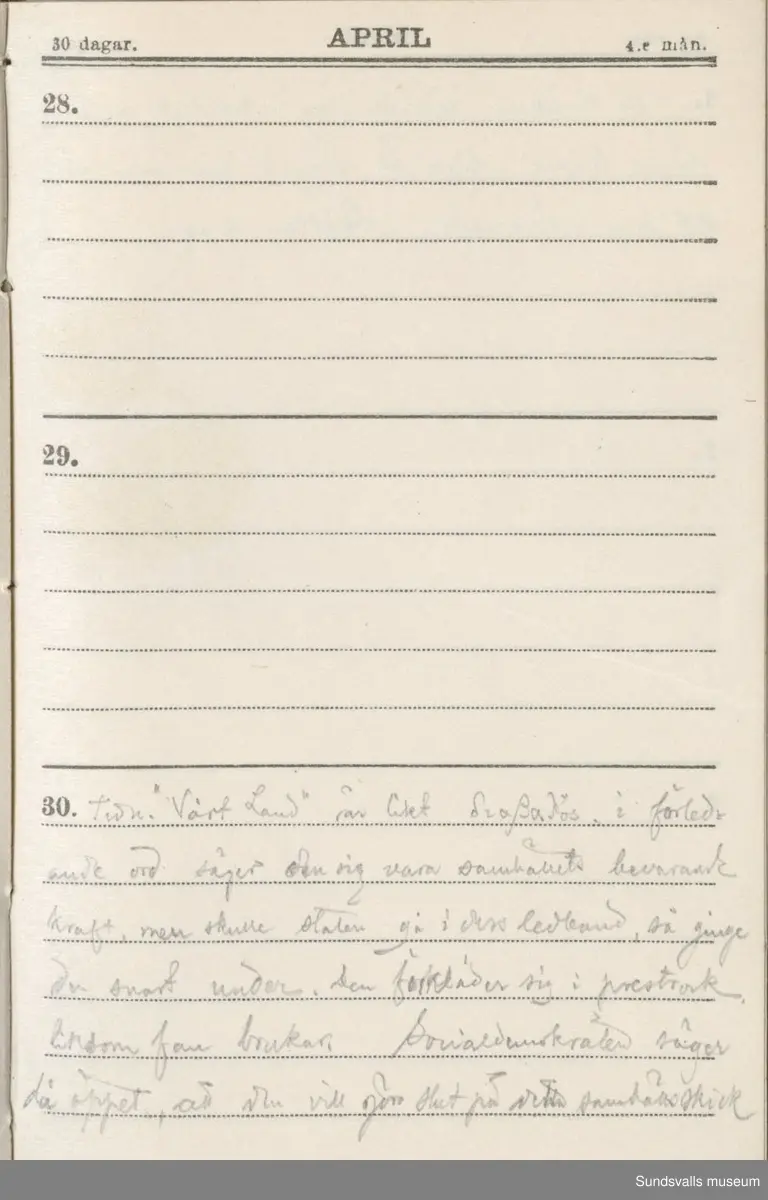 30 dagar. APRIL 4.e mån.
28.
29.
30. Tidn. "Vårt Land" är likt i förled-
ande ord säger den sig vara samhällets bevarande
kraft, men skulle staten gå i dess ledband, så ginge
den snart under. Den förkläder sig i prestrock,
liksom fan brukar. Socialdemokraten säger
då öppet, att den vill göra slut på detta samhällsskick
Sundsvalls museum